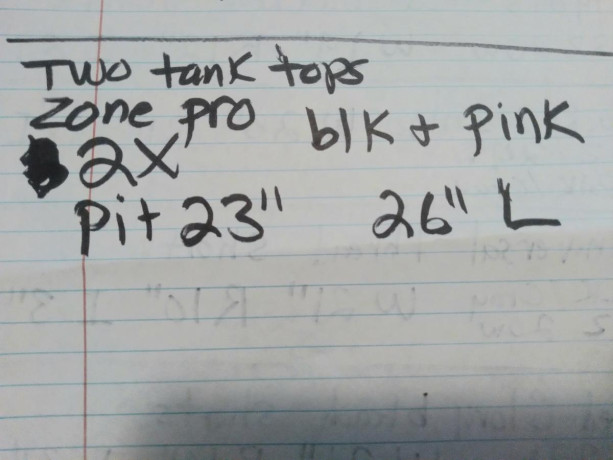 Two tank tops
Zone pro blk + pink
2X
Pit 23" 26" L